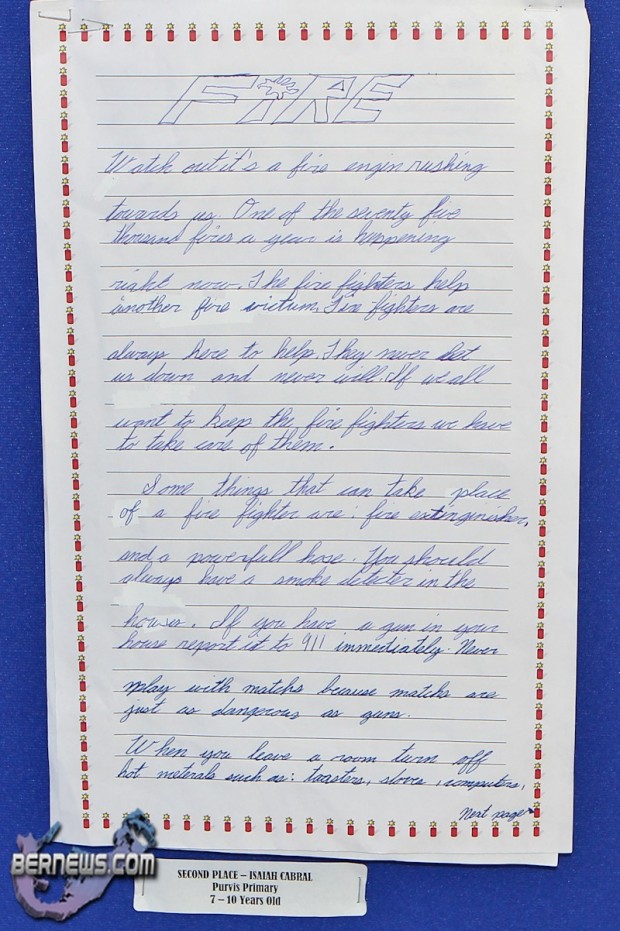 FIRE
Watch out it's a fire engin rushing
towards us. One of the seventy five
thousand fires a year is happening
right now. The fire fighters help
another fire victum. Fire fighters are
always here to help. They never let
us down and never will. If we all
want to keep the fire fighters we have
to take care of them.
Some things that can take place
of a fire fighter are: fire extinginisher,
and a powerfull hose. You should
always have a smoke detecter in the
house. If you have a gun in your
house report it to 911 immediately. Never
play with matchs because matchs are
just as dangerous as guns.
When you leave a room turn off
hot meterals such as: toasters, stoves, computers,
Next page
BERNEWS.COM
SECOND PLACE – ISAIAH CABRAL
Purvis Primary
7 – 10 Years Old